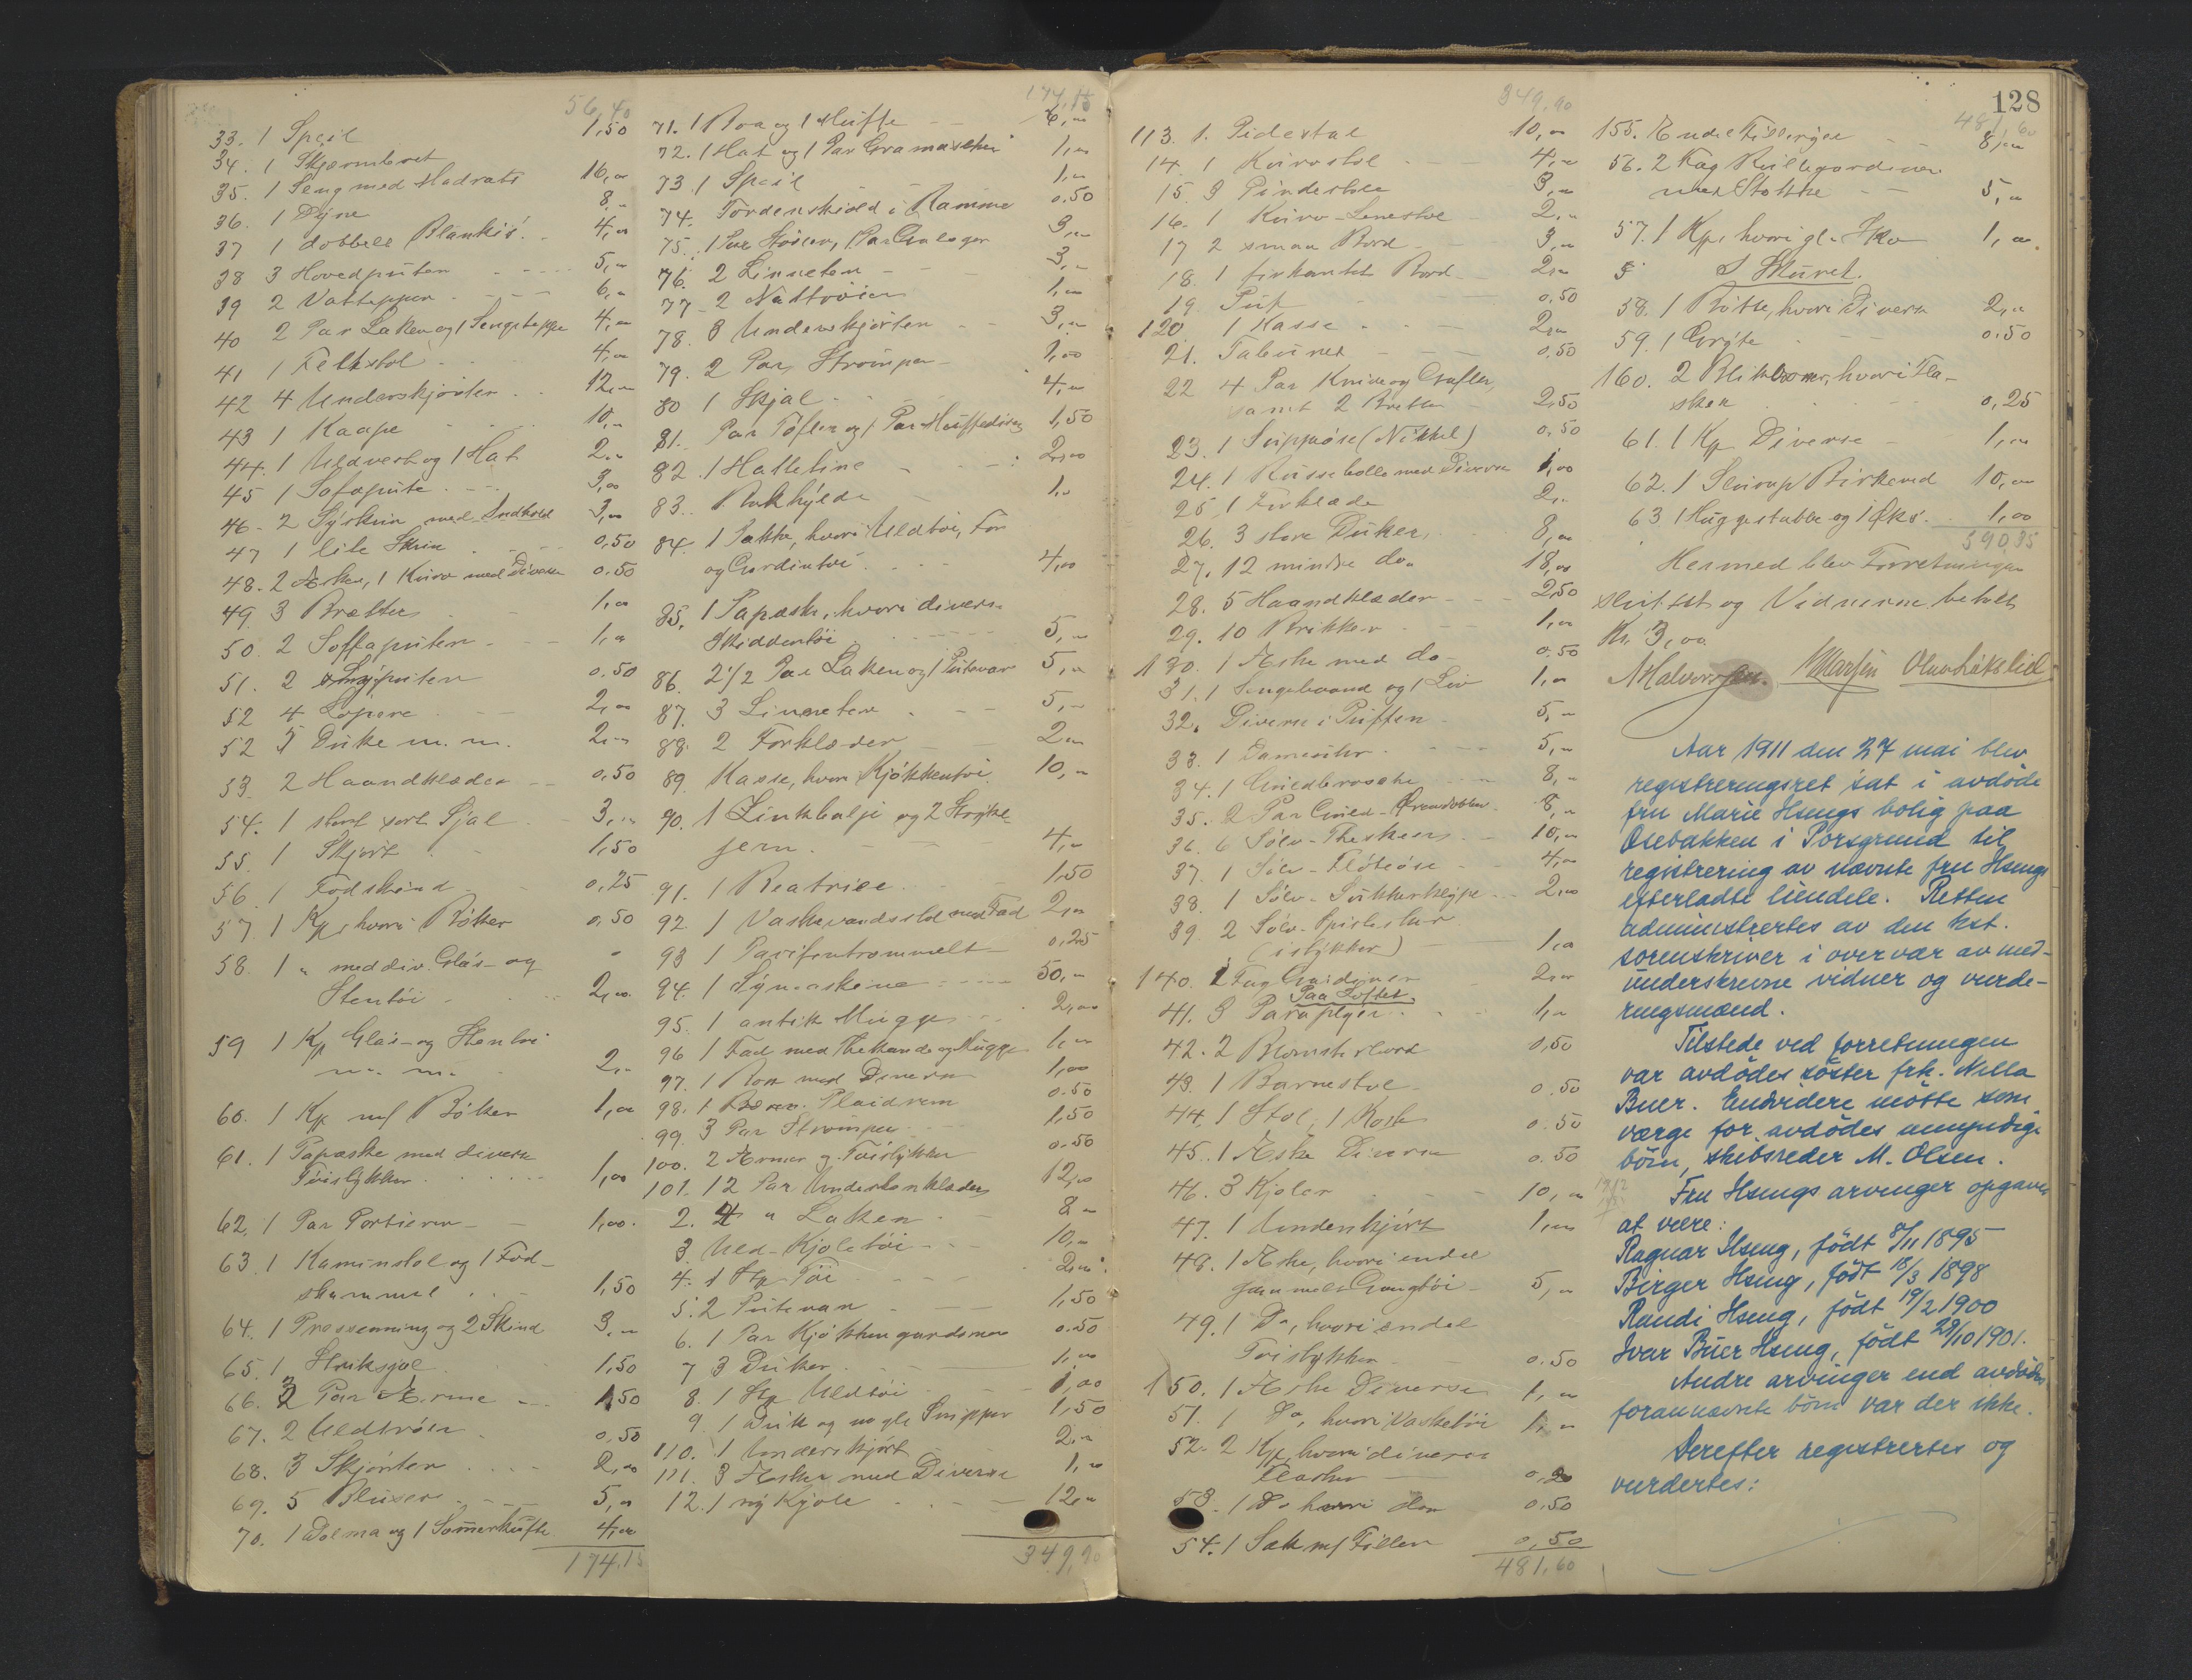 56,40
33. 1 Speil 1,50
34. 1 Skjærmbret
35. 1 Seng med Madrats 16,00
36. 1 Dyne 8,-
37 1 dobbelt Blankis 4,00
38 3 Hovedputer 5,-
39 2 Vattepper 6,-
40 2 Par Laken og 1 Sengeteppe 4,00
41 1 Feltstol 4,00
42 4 Underskjørter 12,-
43 1 Kaape 10,-
44. 1 Uldvest og 1 Hat 2,-
45 1 Sofapute 3,00
46. 2 Syskrin med Indhold 3,00
47 1 lite Skrin 0,50
48. 2 Æsker, 1 Kurv med Diverse 0.50
49. 3 Brætter 1,00
50. 2 Soffaputer 1,00
51. 2 puter 0,50
52 4 Løpere 2,00
52 5 Duke m. m. 2,-
53. 2 Haandklæder 0,50
54. 1 stort sort Sjal 3,-
55. 1 Skjørt 1,50
56. 1 0,25
57. 1 Kp, hvori Bøker 0,50
58. 1 " med div. Glas- og
Stentøi 2,00
59 1 Kp Glas- og Stentøi
m. m. 2,-
60. 1 Kp m/ Bøker 1,00
61. 1 Papæske med diverse
Tøistykker 1,00
62. 1 Par Portierer 1,00.
63. 1 Kaminstol og 1 Fod-
skammel 1,50
64. 1 Pressenning og 2 Skind 3,-
65. 1 1,50
66. 3 Par Ærme 1,50
67. 2 Uldtrøier 0,50
68. 3 Skjørter 2,00
69. 5 Bluser 5,00
70. 1 Dolma og 1 Sommerkufte 4,00
174,15
174,15
71. 1 Boa og 1 Muffe 6,00
72. 1 Hat og 1 Par Gramascher 1,00
73. 1 Speil 1,00
74. Tordenskjold i Ramme 0.50
75. 1 Par Støvler, 1 Par Galoger 3,00
76. 2 Linneter 3,-
77. 2 Nattrøier 1,00
78. 8 Underskjørter 3,-
79. 2 Par Strømper 1,00
80 1 Skjal 4,00
81. Par Tøfler og 1 Par 1,50
82. 1 Hattetine 2,00
83. Bokhylde 1,-
84. 1 Pakke, hvori Uldtøi, For
og Gardintøi 4,00
85. 1 Papæske, hvori diverse
Skiddentøi 5,-
86. 2 1/2 Par Laken og 1 Putevar 5,-
87. 3 Linneter 5,-
88. 2 Forklæder 2,00
89. Kasse, hvori Kjøkkentøi 10,-
90. 1 Zinkbalje og 2 Stryke-
jern 4,-
91. 1 Beatrice 1,50
92. 1 Vaskevandsstol med Fad 2,00
93 1 0,25
94. 1 Symaskine 50,-
95. 1 antik Mugge 2,00
96 1 Fad med Thekande og Mugge 1,-
97. 1 Boks med Diverse 1,00
98. 1 Plaidrem 0.50
99. 3 Par Strømper 1,50
100. 2 Ærmer og Tøistykker 0.50
101. 12 Par Underbenklæder 12,00
2. 4 " Laken 8.-
3. Uld-Kjoletøi 10,-
4. 1 Stk Tøi 2,00.
5. 2 Putevar 1,50
6. 1 Par Kjøkkengardiner 0.50
7 3 Duker 1,00
8. 1 Stk Uldtøi 1,00
9. 1 Duk og nogle Snipper 1,50
110. 1 Underskjørt 2,-
111. 3 Æsker med Diverse 1,00
12. 1 ny Kjole 12,00
349,90
349,90
113. 1. Pidestal 10,00
14. 1 Kurvstol 4,00
15. 3 Pindestole 3,00
16. 1 Kurv-Lænestol 2,-
17 2 smaa Bord 3,00
18. 1 firkantet Bord 2,00
19. Puf 0,50
120. 1 Kasse 2,00
21. Taburet 0.50
22 4 Par Knive og Gafler,
samt 2 Bretter 2,50
23. 1 Suppeøse (Nikkel) 0.50
24. 1 med Diverse 1,00
25. 1 Forklæde 2,-
26. 3 store Duker 8,00
27. 12 mindre do. 18,00
28. 5 Haandklæder 2,50
29. 10 Brikker 1,00
130. 1 Æske med do 0.50
31. 1 og 1 Liv 1,00
32. Diverse i Puffen 5,-
33. 1 Dameuhr 5,-
34. 1 Guldbrosche 8,-
35. 2 Par Guld-Ørendobber 8,-
36. 6 Sølv-Theskeer 10,00
37. 1 Sølv-Fløteøse 4,00
38. 1 Sølv-Sukkerklype 2,00
39. 2 Sølv-Spiseskeer
(i stykker) 1,00
140. 2 Fag Gardiner 2,00
Paa Loftet.
41. 3 Paraplyer 1,-
42. 2 Blomsterbord 0,50
43. 1 Barnestol 0.50
44. 1 Stol, 1 0.50
45. 1 Æske Diverse 0.50
46. 3 Kjoler 10,00
47. 1 Underskjørt 1,00
48. 1 Æske, hvori endel
gammelt Gangtøi 5,00
49. 1 Do, hvori endel
Tøistykker 0.50
150. 1 Æske Diverse 1,00
51. 1 Do, hvori Vasketøi 1,00
52. 2 Kp, hvori diverse
Flasker
53. 1 Do hvori do 0.50
54. 1 Sæk m/ Filler 0,50
481,60
128
481,60
155. Endel 8,00
56. 2 Fag Rullegardiner
med Stokke 5,00
57. 1 Kp, hvori gl. Sko 1,00.
I Skuret.
58. 1 Bøtte, hvori Diverse 2,00
59. 1 Gryte 0.50
160. 2 Blikbokser, hvori Fla-
sker 0,25
61. 1 Kp Diverse 1,00
62. 1 Birkeved 10,00
63. 1 Huggestabbe og 1 Øks. 1,00
590,85
Hermed blev Forretningen
sluttet og Vidnerne betalt
Kr. 3,00
N Halvorsen.
Aar 1911 den 27 mai blev
registreringsret sat i avdøde
fru Marie Hsengs bolig paa
Osebakken i Porsgrund til
registrering av nævnte fru Hsengs
efterladte liendele. Retten
administrertes av den kst.
sorenskriver i overvær av med-
underskrevne vidner og vurde-
ringsmænd.
Tilstede ved forretningen
var avdødes søster frk. Nilla
Buer. Endvidere møtte som
værge for avdødes umyndige
børn, skibsreder M. Olsen.
Fru Hsengs arvinger opgaves
at være:
Ragnar Hseng, født 8/11 1895
Birger Hseng, født 18/3 1898
Randi Hseng, født 19/2 1900
Ivar Buer Hseng, født 29/10 1901.
Andre arvinger end avdødes
forannævnte børn var der ikke.
Derefter registrertes og
vurdertes: